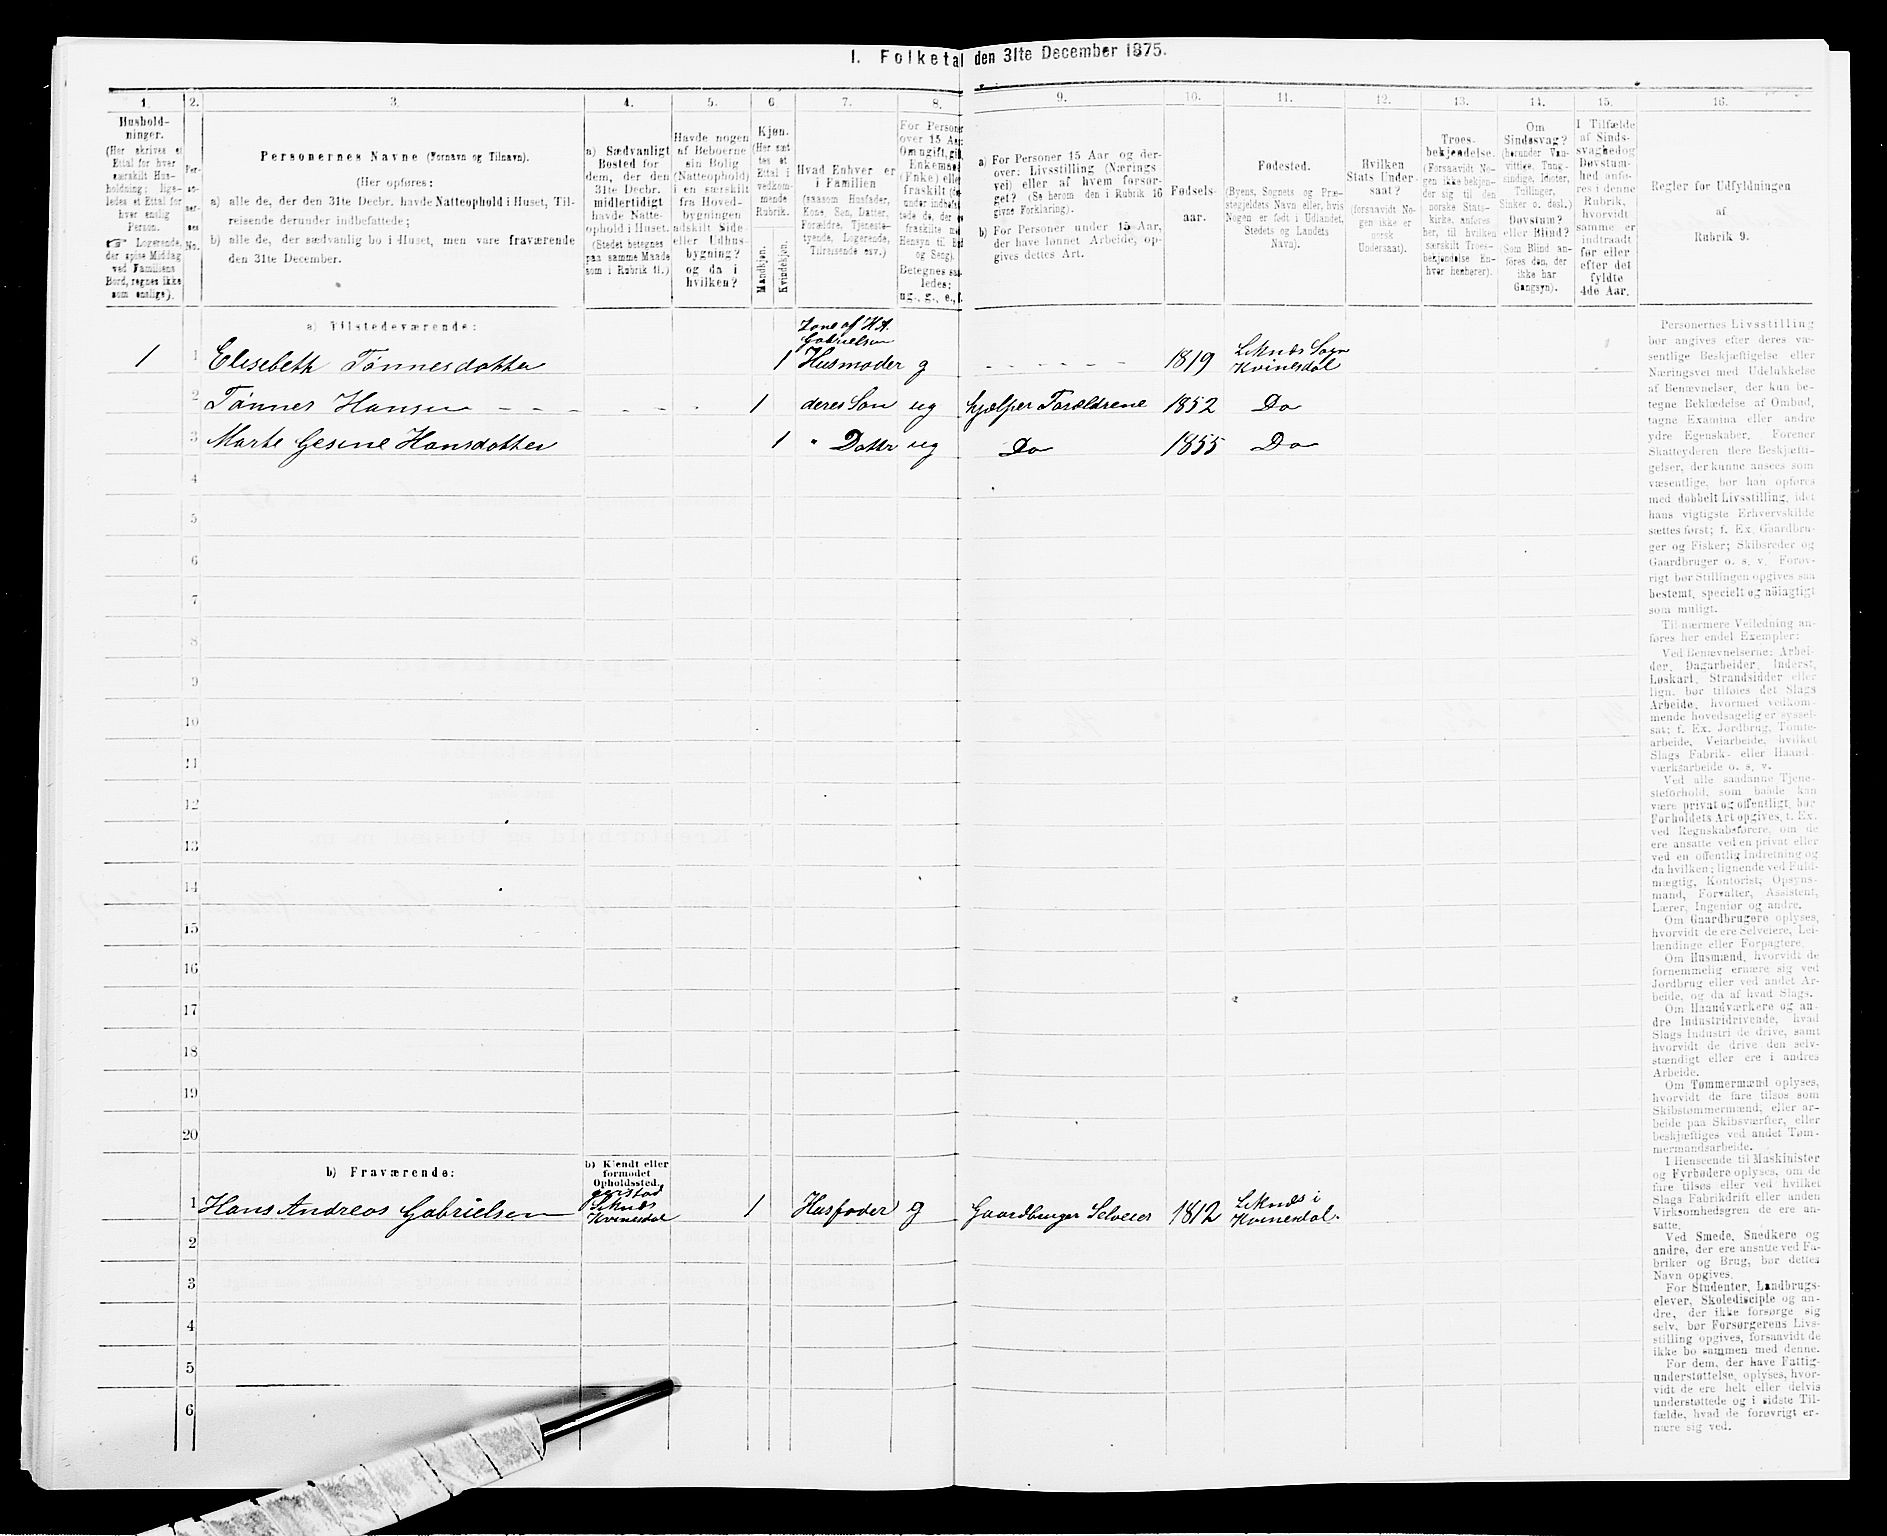 1. Folketal den 31te December 1875.
1. 2. 3. 4. 5. 6 7. 8. 9. 10. 11. 12. 13. 14. 15. 16.
Hushold-
ninger.
(Her skrives et
Ettal for hver
særskilt Hus-
holdning; lige-
ledes et Ettal for
hver enslig
Person.
Logerende,
der spise Middag
ved Familiens
Bord, regnes ikke
som enslige).
Per-
so-
ner-
nes
No.
Personernes Navne (Fornavn og Tilnavn).
(Her opføres:
a) alle de, der den 31te Decbr. havde Natteophold i Huset, Til-
reisende derunder indbefattede;
b) alle de, der sædvanlig bo i Huset, men vare fraværende
den 31te December.
a) Sædvanligt
Bosted for
dem, der den
31te Decbr.
midlertidigt
havde Natte-
ophold i Huset.
(Stedet betegnes
paa samme Maade
som i Rubrik 11.)
Havde nogen
af Beboerne
sin Bolig
(Natteophold)
i en særskilt
fra Hoved-
bygningen
adskilt Side-
eller Udhus-
bygning?
og da i
hvilken?
Kjøn.
(Her sæt-
tes et
Ettal i
vedkom-
mende
Rubrik.
Mandkjøn.
Kvindekjøn.
Hvad Enhver er
i Familien
(saasom Husfader,
Kone, Søn, Datter,
Forældre, Tjeneste-
tyende, Logerende,
Tilreisende osv.)
For Personer
over 15 Aar:
Om ugift, gift,
Enkemand
(Enke) eller
fraskilt
Betegnes saa-
ledes:
ug., g., e., f.
a) For Personer 15 Aar og der-
over: Livsstilling (Nærings-
vei) eller af hvem forsør-
get? (Se herom den i Rubrik 16
givne Forklaring).
b) For Personer under 15 Aar,
der have lønnet Arbeide, op-
gives dettes Art.
Fødsels-
aar.
Fødested.
(Byens, Sognets og Præ-
stegjeldets Navn eller, hvis
Nogen er født i Udlandet,
Stedets og Landets
Navn).
Hvilken
Stats Under-
saat?
(forsaavidt No-
gen ikke er
norsk
Undersaat).
Troes-
bekjendelse.
(Forsaavidt No-
gen ikke bekjen-
der sig til den
norske Stats-
kirke, anføres
her, til hvilken
særskilt Troes-
bekjendelse En-
hver henhører).
Om
Sindssvag?
(herunder Van-
vittige, Tung-
sindige, Idioter,
Tullinger,
Sinker o. desl.)
Døvstum?
eller Blind?
(Som Blind an-
føres den, der
ikke har
Gangsyn).
I Tilfælde
af Sinds-
svaghed og
Døvstum-
hed anfø-
res i denne
Rubrik,
hvorvidt
samme er
indtraadt
før eller
efter det
fyldte
4de Aar.
Regler for Udfyldningen
af
Rubrik 9.
a) Tilstedeværende:
Kone af H. A.
Gabrielsen
1 1 Elisebeth Tønnesdatter 1 Husmoder g - - - - - 1819 Leknæs Sogn
Kvinesdal
2 Tønnes Hansen - - - - - - 1 deres Søn ug hjælper Forældrene 1852 Do
3 Marte Gesine Hansdatter 1 " Datter ug Do 1855 Do
4
5
6
7
8
9
10
11
12
13
14
15
16
17
18
19
20
b) Fraværende:
b) Kjendt eller
formodet
Opholdssted.
Leknæs
Kvinesdal
1 Hans Andreas Gabrielsen 1 Husfader g Gaardbruger Selveier 1812 Leknæs i
Kvinesdal.
2
3
4
5
6
Personernes Livsstilling
bør angives efter deres væ-
sentlige Beskjæftigelse eller
Næringsvei med Udelukkelse
af Benævnelser, der kun be-
tegne Beklædelse af Ombud,
tagne Examina eller andre
ydre Egenskaber. Forener
Skatteyderen flere Beskjæfti-
gelser, der kunne ansees som
væsentlige, bør han opføres
med dobbelt Livsstilling, idet
hans vigtigste Erhvervskilde
sættes først; f. Ex. Gaardbru-
ger og Fisker; Skibsreder og
Gaardbruger o. s. v. Forøv-
rigt bør Stillingen opgives saa
bestemt, specielt og nöiagtigt
som muligt.
Til nærmere Veiledning an-
føres her endel Exempler:
Ved Benævnelserne: Arbei-
der, Dagarbeider, Inderst,
Løskarl, Strandsidder eller
lign. bør tilføies det Slags
Arbeide, hvormed vedkom-
mende hovedsagelig er syssel-
sat; f. Ex. Jordbrug, Tømte-
arbeide, Veiarbeide, hvilket
Slags Fabrik- eller Haand-
værksarbeide o. s. v.
Ved alle saadanne Tjene-
steforhold, som baade kan
være privat og offentligt, bør
Forholdets Art opgives, f. Ex.
ved Regnskabsførere, om de
ere ansatte ved en privat eller
ved en offentlig Indretning og
da hvilken; lignende ved Fuld-
mægtig, Kontorist, Opsyns-
mand, Forvalter, Assistent,
Lærer, Ingeniør og andre.
Om Gaardbrugere oplyses,
hvorvidt de ere Selveiere, Lei-
lændinge eller Forpagtere.
Om Husmænd, hvorvidt de
fornemmelig ernære sig ved
Jordbrug eller ved andet Ar-
beide, og da af hvad Slags.
Om Haandværkere og an-
dre Industridrivende, hvad
Slags Industri de drive, samt
hvorvidt de drive den selv-
stændigt eller ere i andres
Arbeide.
Om Tømmermænd oplyses,
hvorvidt de fare tilsøs som
Skibstømmermænd, eller ar-
beide paa Skibsværfter, eller
beskjæftiges ved andet Tøm-
mermandsarbeide.
I Henseende til Maskinister
og Fyrbødere oplyses, om de
fare tilsøs eller ved hvilket
Slags Fabrikdrift eller anden
Virksomhedsgren de ere an-
satte.
Ved Smede, Snedkere og
andre, der ere ansatte ved Fa-
briker og Brug, bør dettes
Navn opgives.
For Studenter, Landbrugs-
elever, Skoledisciple og an-
dre, der ikke forsørge sig
selv, bør Forsørgerens Livs-
stilling opgives, forsaavidt de
ikke bo sammen med denne.
For dem, der have Fattig-
understøttelse, oplyses, hvor-
vidt de ere helt eller delvis
understøttede og i sidste Til-
fælde, hvad de forøvrigt er-
nære sig ved.